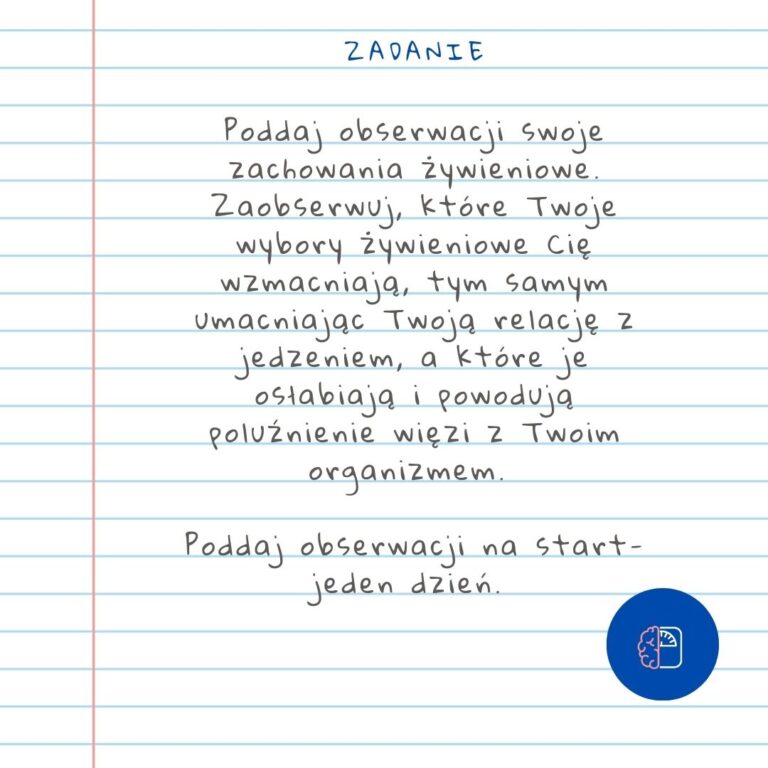 ZADANIE
Poddaj obserwacji swoje
zachowania żywieniowe.
Zaobserwuj, które Twoje
wybory żywieniowe Cię
wzmacniają, tym samym
umacniając Twoją relację z
jedzeniem, a które je
osłabiają i powodują
poluźnienie więzi z Twoim
organizmem.
Poddaj obserwacji na start-
jeden dzień.